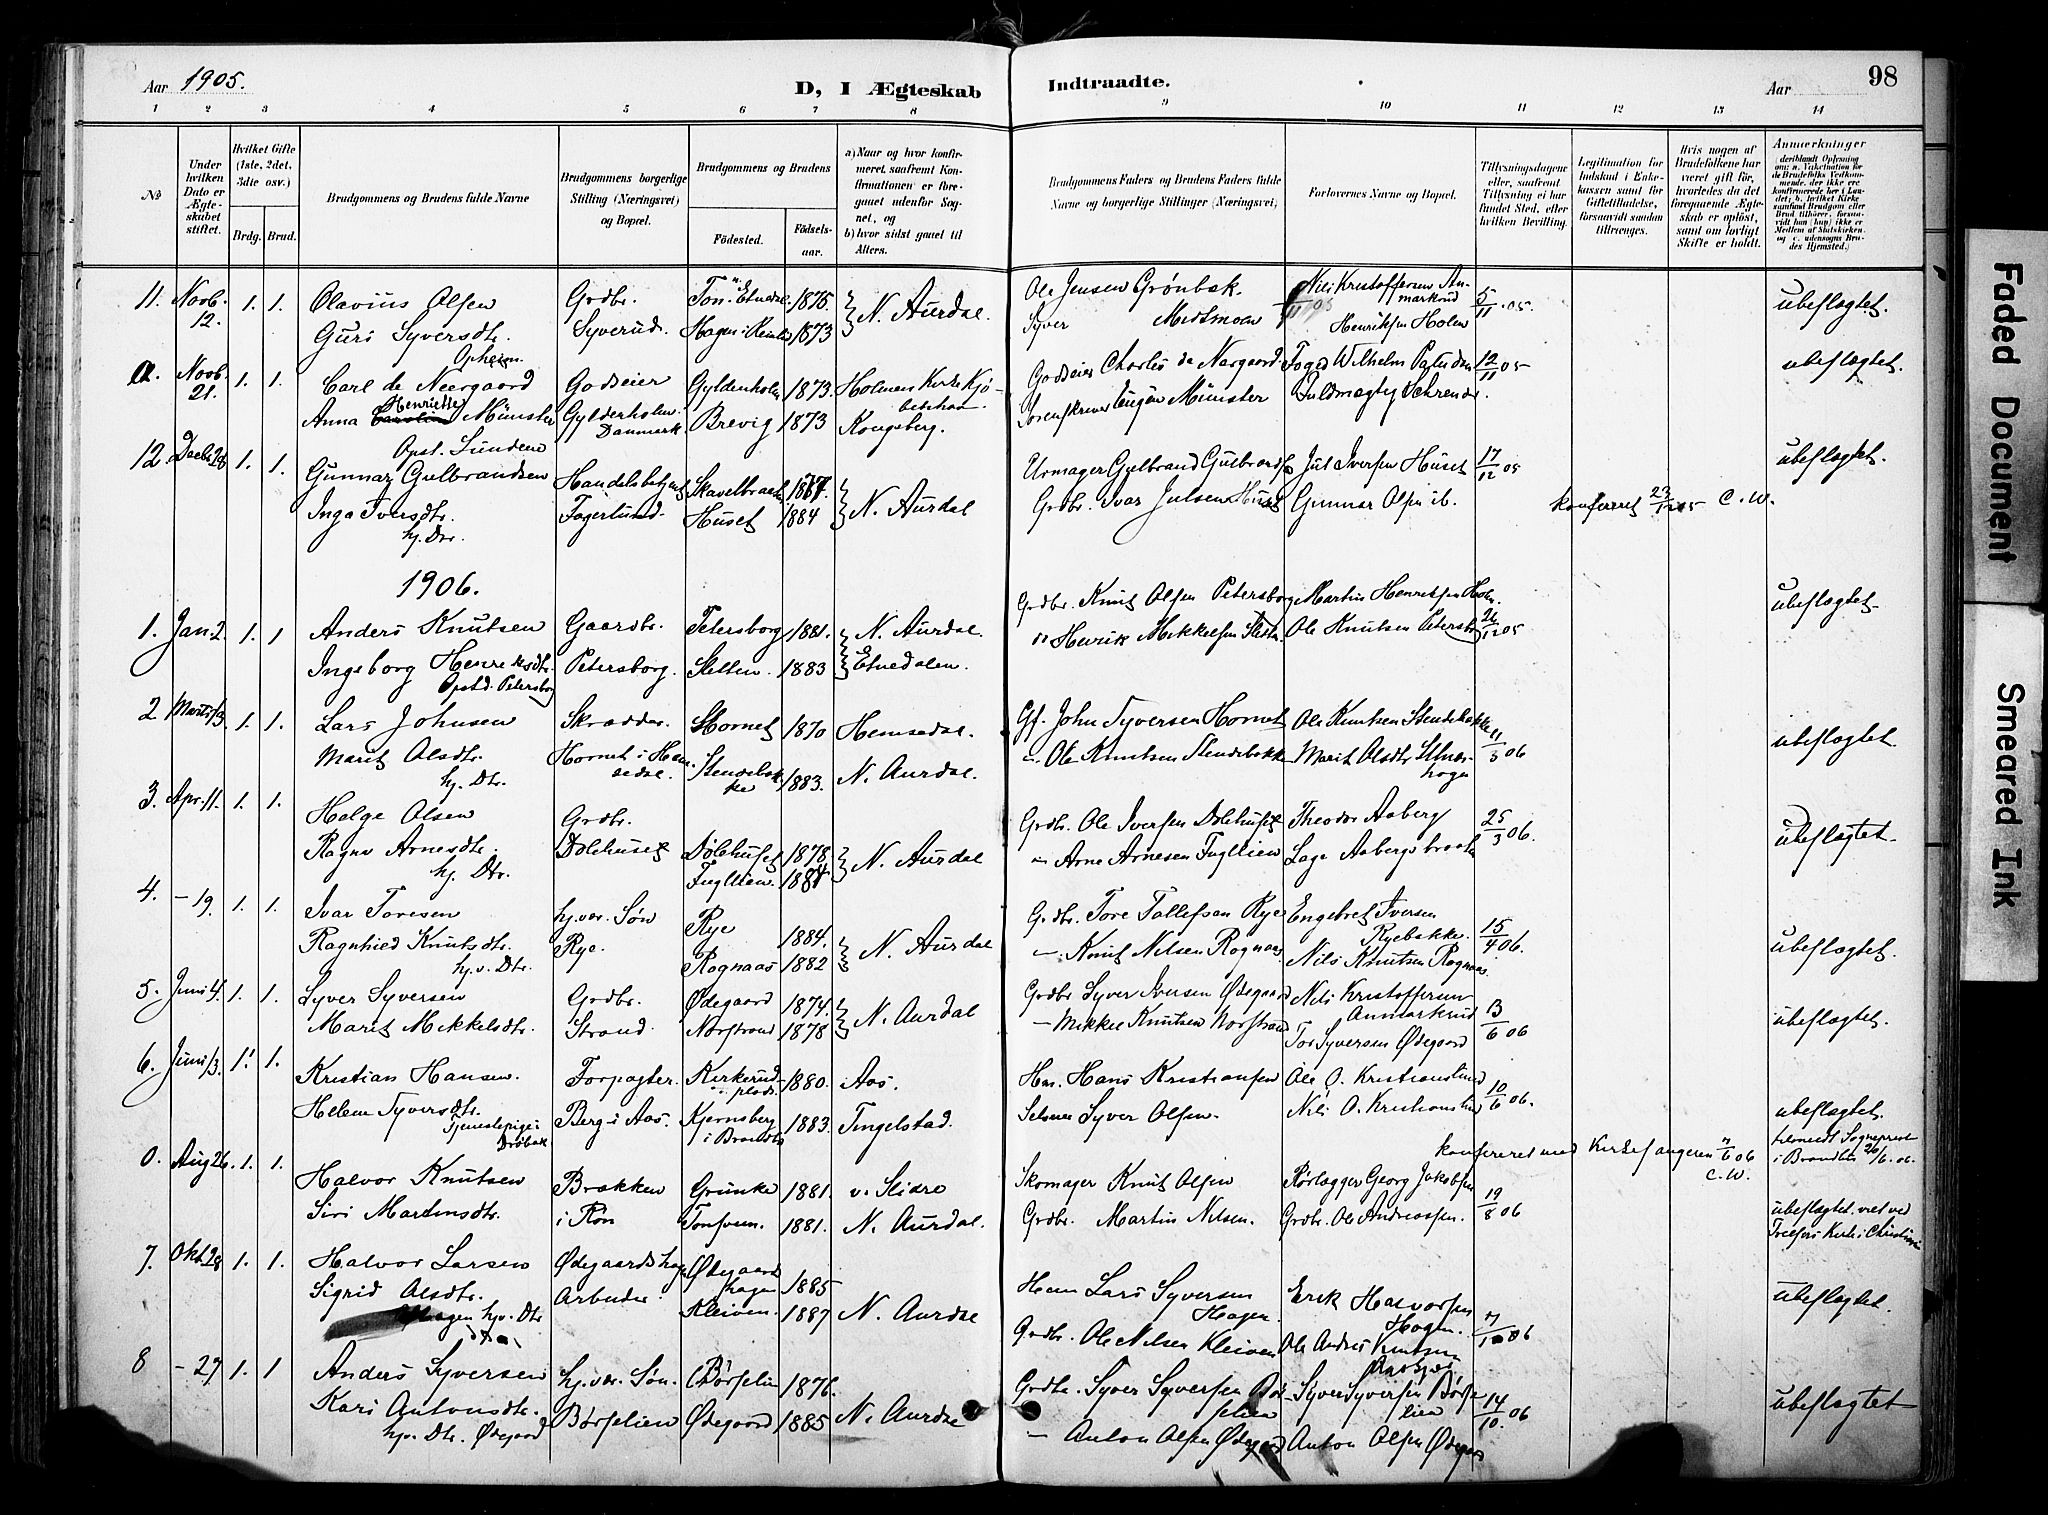 Aar 1905.
D, I Ægteskab Indtraadte.
Aar
98
1 2 3 4 5 6 7 8 9 10 11 12 13 14
№
Under hvilken Dato er Ægteskabet stiftet.
Hvilket Gifte (1ste, 2det, 3die osv.)
Brdg. Brud.
Brudgommens og Brudens fulde Navne
Brudgommens borgerlige Stilling (Næringsvei) og Bopæl.
Brudgommens og Brudens
Födested. Födselsaar.
a) Naar og hvor konfirmeret, saafremt Konfirmationen er foregaaet udenfor Sognet, og
b) hvor sidst gaaet til Alters.
Brudgommens Faders og Brudens Faders fulde Navne og borgerlige Stillinger (Næringsvei)
Forlovernes Navne og Bopæl.
Tillysningsdagene eller, saafremt Tillysning ei har fundet Sted, efter hvilken Bevilling.
Legitimation for Indskud i Enkekassen samt for Giftetilladelse, forsaavidt saadan tiltrænges.
Hvis nogen af Brudefolkene har været gift før, hvorledes da det foregaaende Ægteskab er oplöst, samt om lovligt Skifte er holdt.
Anmerkninger
11. Novb. 12. 1. 1. Olavius Olsen Grdbr. Ton, Etnedal 1875 N. Aurdal. Ole Jensen Grønbæk Nils Kristoffersen Anmarkrud 5/11 05. ubeslægtet.
Guri Syversdtr. Opheim. Syverud. Hagen i Reinli 1873 Syver Midtmoen Henriksen Holen
a. Novb. 21. 1. 1. Carl de Neergaard Godseier Gyldenholm 1873. Holmens Kirke Kjøbenhavn. Godseier Charles de Neergaard Foged Wilhelm 12/11 05 ubeslægtet.
Anna Henriette Münster Gyldenholm. Danmark Brevig 1873 Kongsberg. Sorenskriver Eugen Münster Fuldmægtig
12. Decbr. 28 1. 1. Opst. Sunden Gunnar Gulbrandsen Handelsbetjent 1867 N. Aurdal Urmager Gulbrand Gulbrands. Jul Iversen Huset 17/12 05 ubeslægtet.
Inga Iversdtr. hj. Dtr. Fagerlund. Huset 1884 Grdbr. Ivar Julsen Huset Gunnar Olsen ib. konfereret 23/1 05 C. W.
1906.
1. Jan. 2. 1. 1 Anders Knutsen Gaardbr. Petersborg 1881. N. Aurdal. Grdbr. Knut Olsen Petersborg Martin Henriksen Holm. 26/12 05 ubeslægtet.
Ingeborg Henriksdtr. Opst.d. Petersborg Petersborg. Sletten. 1883 Etnedalen. " Henrik Mikkelsen Sletten Ole Knutsen Petersborg
2 Marts 13. 1. 1. Lars Johnsen Skrædder. Hornet 1870 Hemsedal. Gf. John Syversen Hornet Ole Knutsen Stendebakke 11/3 06 ubeslægtet.
Marit Olsdtr. hj. Dtr. Hornet i Hemsedal. Stendebakke 1883. N. Aurdal. " Ole Knutsen Stendebakke Marit Olsdtr.
3. Apr. 11. 1. 1. Helge Olsen Grdbr. Dölehuset 1878 N. Aurdal Grdbr. Ole Iversen Dölehuset Theodor Aaberg 25/3 06. ubeslægtet.
Ragne Arnesdtr. hj. Dtr. Dölehuset Fugllien 1881 - Arne Arnesen Fugllien Lage Aabergsbraaten
4. - 19. 1. 1. Ivar Toresen hj.vær. Søn Rye 1884. N. Aurdal Grdbr. Tore Tollefsen Rye Engebret Iversen Ryebakke. 15/4 06. ubeslægtet.
Ragnhild Knutsdtr. hj. v. Dtr. Rye. Rognaas 1882 - Knut Nilsen Rognaas Nils Knutsen Rognaas.
5. Juni 4. 1. 1. Syver Syversen Grdbr. Ødegaard 1874. N. Aurdal Grdbr Syver Iversen Ødegaard Nils Kristoffersen Anmarkrud 13/6 06 ubeslægtet.
Marit Mikkelsdtr. Strand. Norstrand 1878 - Mikkel Knutsen Norstrand Tor Syversen Ødegaard
6. Juni 13. 1. 1. Kristian Hansen. Forpagter. Kirkerudplads 1880. Aas. Hm. Hans Kristiansen Ole O. Kristianslund 10/6 06. ubeslægtet.
Helene Syversdtr. Tjenestepige i Drøbak Berg i Aas. Kjernsberg i Brandbu 1883. Tingelstad. Selveier Syver Olsen. Nils O. Kristianslund tilmeldt Sognepræst i Brandbu 26/6. 06.
konfereret med Kirkesangeren 7/6 06 C. W.
0. Aug 26. 1. 1. Halvor Knutsen Brakken Grunke 1881. v. Slidre Skomager Knut Olsen Rørlægger Georg Jakobsen 19/8 06 ubeslægtet. viet ved
Siri Martinsdtr. i Røn Tonsveen. 1881. N. Aurdal. Grdbr. Martin Nilsen. Grdbr. Ole Andreassen. Kirke i Christiania
7. Okt. 28 1. 1. Halvor Larsen Ødegaardshagen Ødegaardshagen 1885 N. Aurdal Hm Lars Syversen Hagen. Erik Halvorsen Hagen. 7/10 06 ubeslægtet.
Sigrid Olsdtr. hjv. Dtr Arbeider. Kleiven. 1887 Grdbr. Ole Nilsen Kleiven Ole Andreas Knutsen
8 - 27 1. 1 Anders Syversen hj.vær. Søn. Børselien 1876. N. Aurdal Grdbr. Syver Syversen Børselien Syver Syversen Børselien 14/10. 06 ubeslægtet
Kari Antonsdtr. hjv. Dtr. Ødegaard Børselien Ødegaard 1885 - Anton Olsen Ødegaard Anton Olsen Ødegaard
Faded Document
Smeared Ink